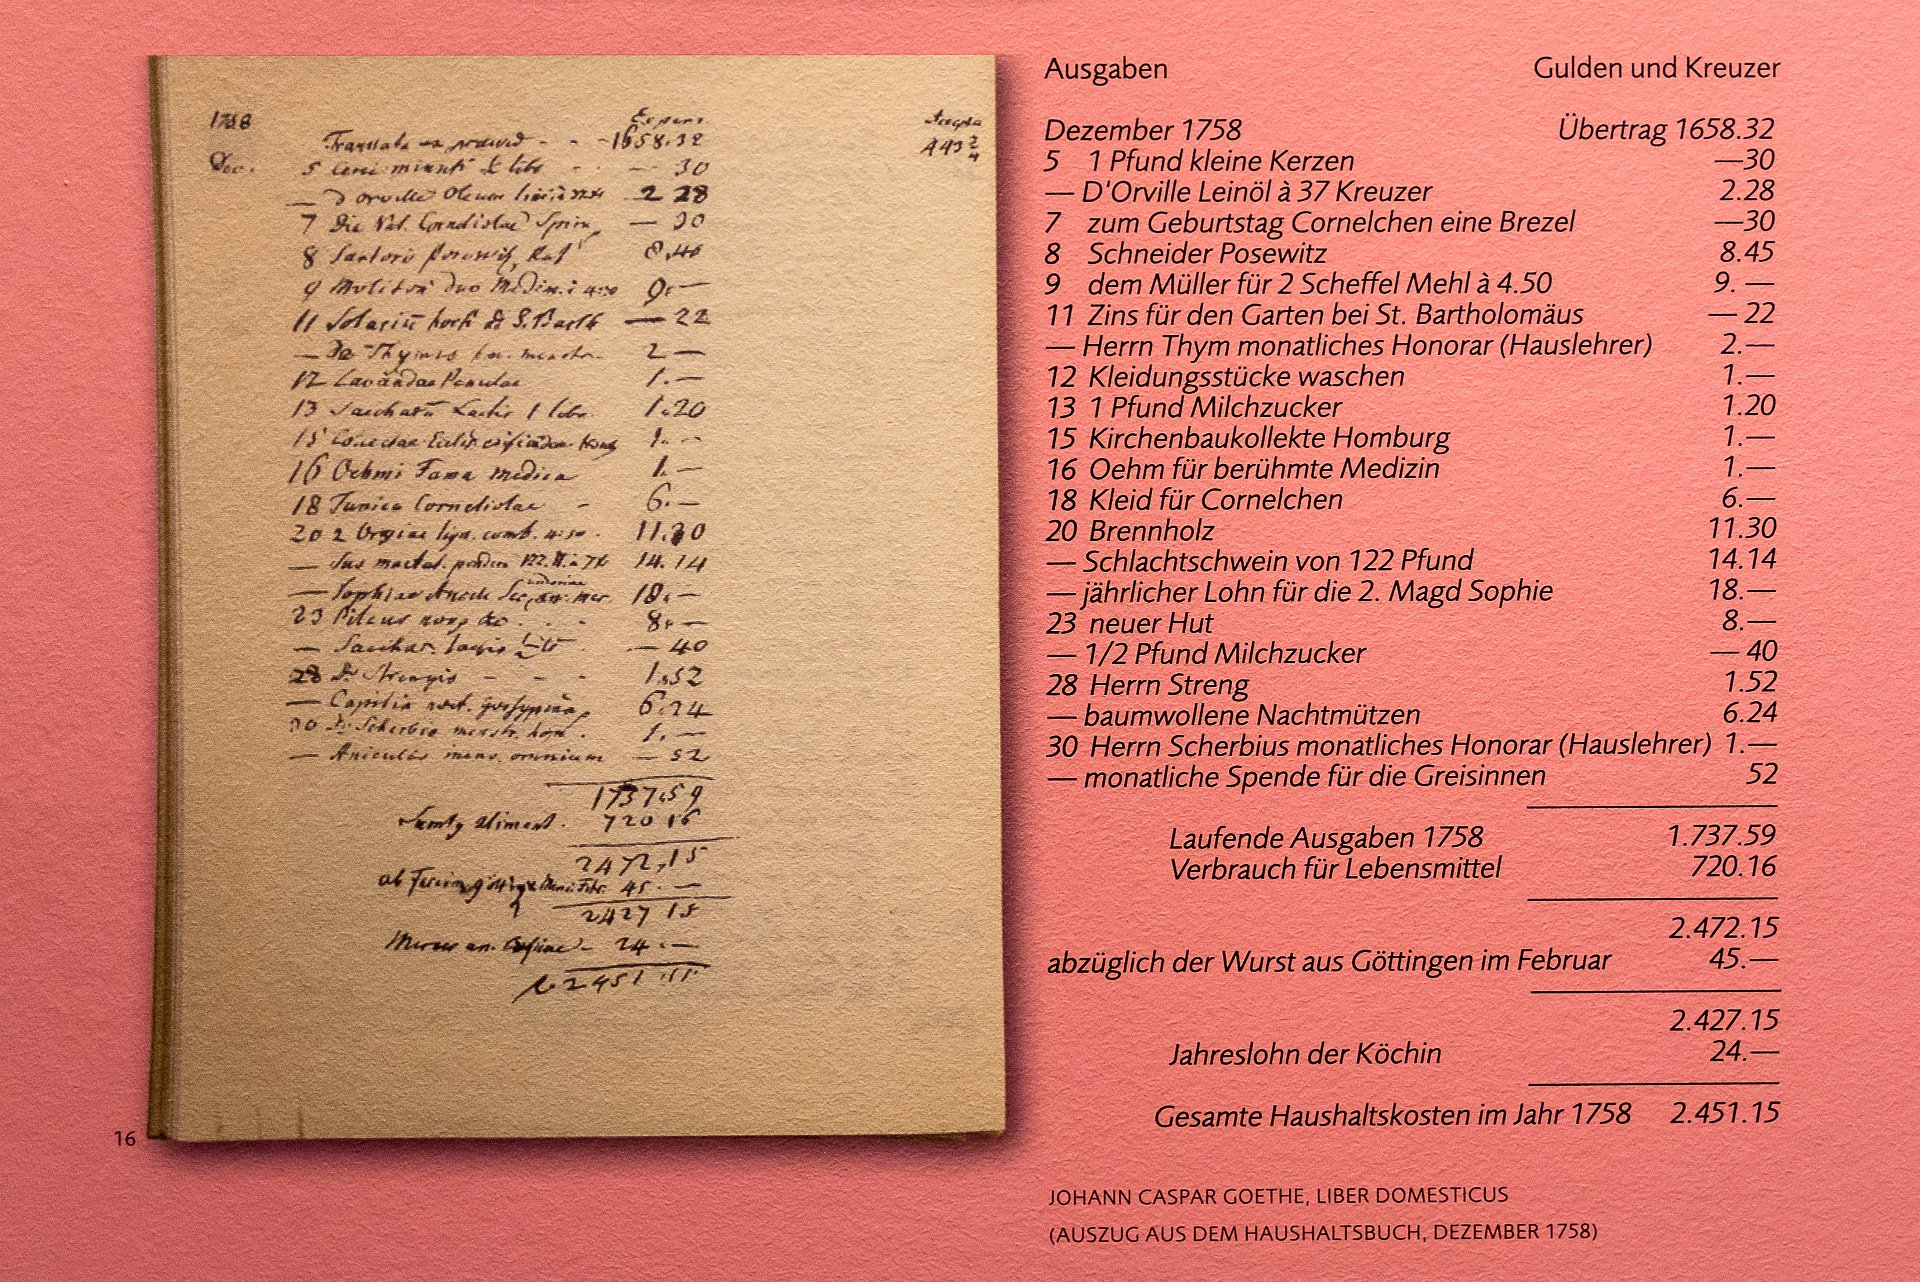 1758
Expens
1658.32
Dec. 5 — 30
— D'orville Oleum 2 28
7 Die Nat. Corneliolae — 30
8 Sartori Posewiz 8.45
9 Molitori duo Medimn. à 9. —
11 Solarium horti ad S. Barth — 22
— Thymio hon. menstr. 2 —
12 Lavandae Penulae 1. —
13 Saccharum Lactis 1 libr. 1.20
15 1. —
16 Oehmi Fama medica 1. —
18 Tunica Corneliolae 6. —
20 2 Orgiae lign. comb. 11.30
— Sus mactat. pondere 122 14.14
— Sophiae 18. —
23 Pileus 8. —
— Sacchar. lactis — 40
28 Strengio 1.52
— 6.24
30 Scherbio menstr. hon. 1. —
— Aniculis mens. omnium — 52
1737.59
720 16
2472.15
45. —
2427 15
24. —
2451
16
Ausgaben Gulden und Kreuzer
Dezember 1758 Übertrag 1658.32
5 1 Pfund kleine Kerzen —30
— D'Orville Leinöl à 37 Kreuzer 2.28
7 zum Geburtstag Cornelchen eine Brezel —30
8 Schneider Posewitz 8.45
9 dem Müller für 2 Scheffel Mehl à 4.50 9. —
11 Zins für den Garten bei St. Bartholomäus — 22
— Herrn Thym monatliches Honorar (Hauslehrer) 2.—
12 Kleidungsstücke waschen 1.—
13 1 Pfund Milchzucker 1.20
15 Kirchenbaukollekte Homburg 1.—
16 Oehm für berühmte Medizin 1.—
18 Kleid für Cornelchen 6.—
20 Brennholz 11.30
— Schlachtschwein von 122 Pfund 14.14
— jährlicher Lohn für die 2. Magd Sophie 18.—
23 neuer Hut 8.—
— 1/2 Pfund Milchzucker — 40
28 Herrn Streng 1.52
— baumwollene Nachtmützen 6.24
30 Herrn Scherbius monatliches Honorar (Hauslehrer) 1.—
— monatliche Spende für die Greisinnen 52
Laufende Ausgaben 1758 1.737.59
Verbrauch für Lebensmittel 720.16
2.472.15
abzüglich der Wurst aus Göttingen im Februar 45.—
2.427.15
Jahreslohn der Köchin 24.—
Gesamte Haushaltskosten im Jahr 1758 2.451.15
JOHANN CASPAR GOETHE, LIBER DOMESTICUS
(AUSZUG AUS DEM HAUSHALTSBUCH, DEZEMBER 1758)